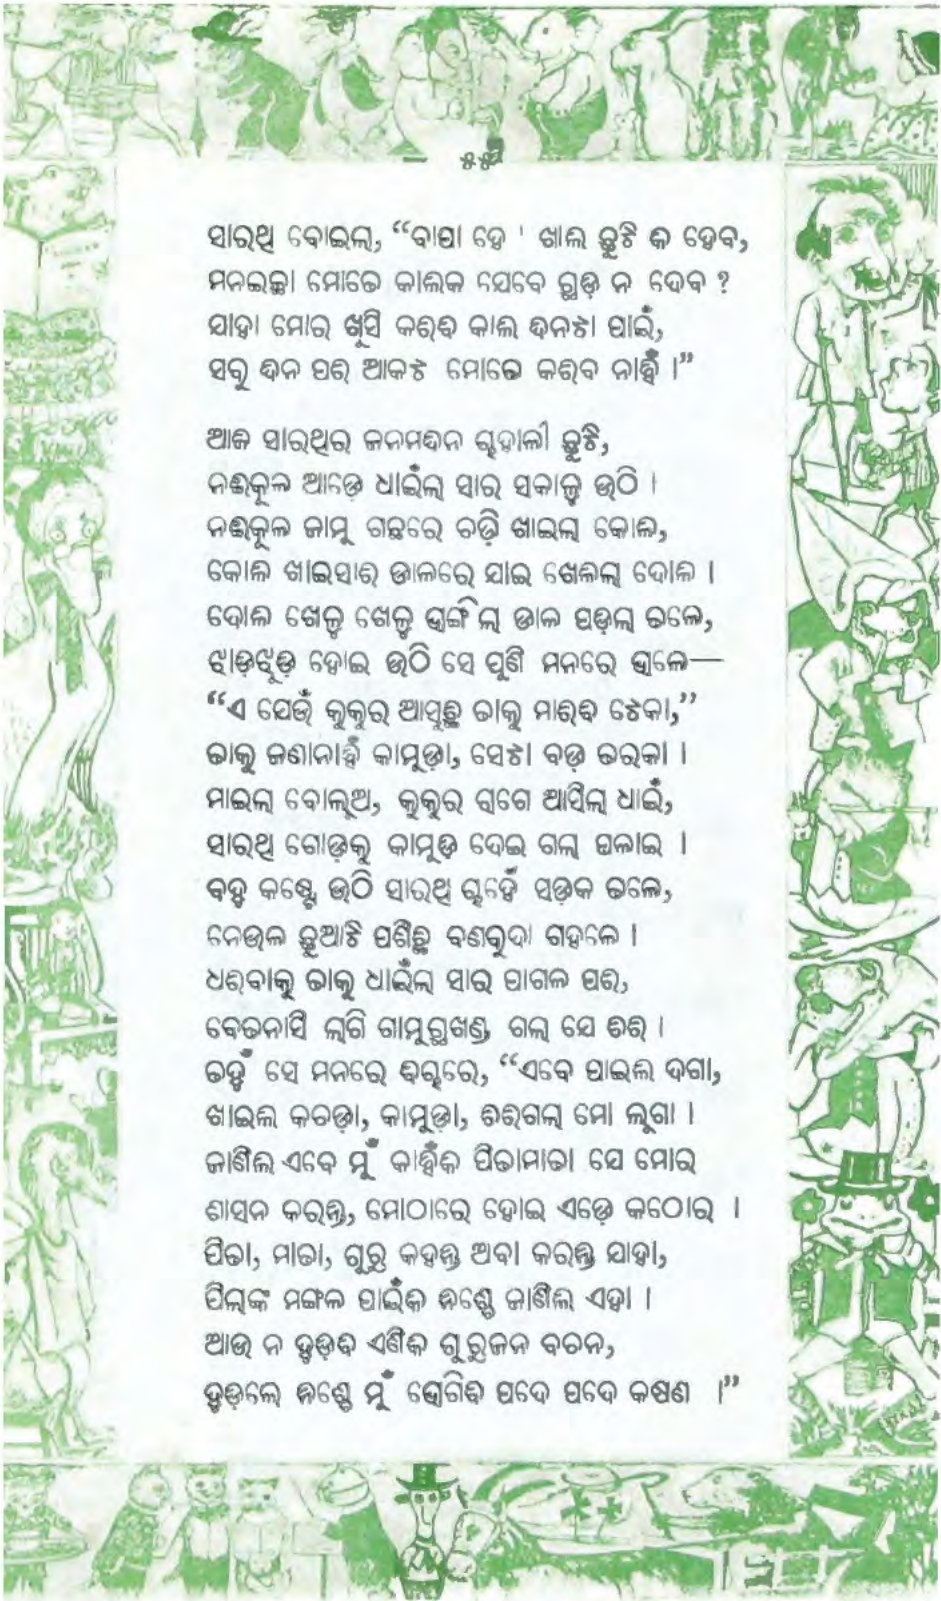 ୫୫
ସାରଥି ବୋଇଲା, “ବାପା ହେ ! ଖାଲି ଛୁଟି କି ହେବ,
ମନଇଚ୍ଛା ମୋତେ କାଲିକ ଯେବେ ଛାଡ଼ି ନ ଦେବ ?
ଯାହା ମୋର ଖୁସି କରିବି କାଲି ଦିନଟା ପାଇଁ,
ସବୁ ଦିନ ପରି ଆକଟ ମୋତେ କରିବ ନାହିଁ ।”
ଆଜି ସାରଥିର ଜନମଦିନ ଗୃହାଳୀ ଛୁଟି,
ନଈକୂଳ ଆଡ଼େ ଧାଇଁଲା ସାର ସକାଳୁ ଉଠି ।
ନଈକୂଳ ଜାମୁ ଗଛରେ ଚଢ଼ି ଖାଇଲା କୋଳି,
କୋଳି ଖାଇସାରି ଡାଳରେ ଯାଇ ଖେଳିଲା ଦୋଳି ।
ଦୋଳି ଖେଳୁ ଖେଳୁ ଭାଙ୍ଗିଲା ଡାଳ ପଡ଼ିଲା ତଳେ,
ଝାଡ଼ିଝୁଡ଼ି ହୋଇ ଉଠି ସେ ପୁଣି ମନରେ ଭାଳେ—
“ଏ ଯେଉଁ କୁକୁର ଆସୁଛି ତାକୁ ମାରିବି ଟେକା,”
ତାକୁ ଜଣାନାହିଁ କାମୁଡ଼ା, ସେଟା ବଡ଼ ତରକା ।
ମାଇଲା ବୋଲୁଅ, କୁକୁର ରାଗେ ଆସିଲା ଧାଇଁ,
ସାରଥି ଗୋଡ଼କୁ କାମୁଡ଼ି ଦେଇ ଗଲା ପଳାଇ ।
ବହୁ କଷ୍ଟେ ଉଠି ସାରଥି ଚାହେଁ ସଡ଼କ ତଳେ,
ନେଉଳ ଛୁଆଟି ପଶିଛି ବଣବୁଦା ଗହଳେ ।
ଧରିବାକୁ ତାକୁ ଧାଇଁଲା ସାର ପାଗଳ ପରି,
ବେତନାସି ଲାଗି ଗାମୁଛାଖଣ୍ଡି ଗଲା ଯେ ଚିରି ।
ତହୁଁ ସେ ମନରେ ବିଚାରେ, “ଏବେ ପାଇଲି ଦଗା,
ଖାଇଲି କଚଡ଼ା, କାମୁଡ଼ା, ଚିରିଗଲା ମୋ ଲୁଗା ।
ଜାଣିଲି ଏବେ ମୁଁ କାହିଁକି ପିତାମାତା ଯେ ମୋର
ଶାସନ କରନ୍ତି, ମୋଠାରେ ହୋଇ ଏଡ଼େ କଠୋର ।
ପିତା, ମାତା, ଗୁରୁ କହନ୍ତି ଅବା କରନ୍ତି ଯାହା,
ପିଲାଙ୍କ ମଙ୍ଗଳ ପାଇଁକି ନିଶ୍ଚେ ଜାଣିଲି ଏହା ।
ଆଉ ନ ହୁଡ଼ିବି ଏଣିକି ଗୁରୁଜନ ବଚନ,
ହୁଡ଼ିଲେ ନିଶ୍ଚେ ମୁଁ ଭୋଗିବି ପଦେ ପଦେ କଷଣ ।”